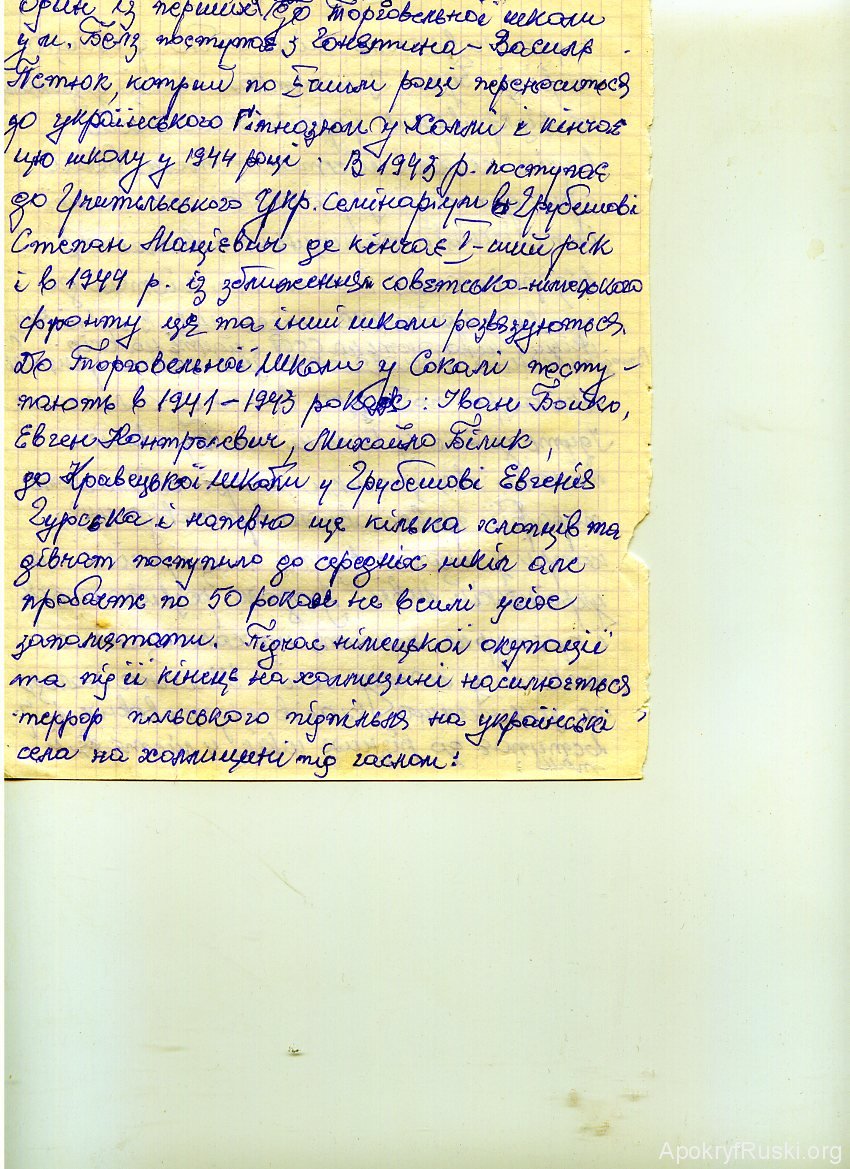 один із перших до Торговельної школи
у м. Белз поступає з Гонятина – Василь
Пєтюк, котрий по I-шим році переноситься
до українського Гімназюм у Холмі і кінчає
цю школу у 1944 році. В 1943 р. поступає
до Учительського Укр. семінаріум в Грубешові
Степан Мацієвич де кінчає I-ший рік
і в 1944 р. із зближення совєтсько-німецького
фронту ця та інші школи розвязуються.
До Торговельної Школи у Сокалі посту-
пають в 1941–1943 роках: Іван Бойко,
Евген Контролевич, Михайло Білик,
до Кравецької школи у Грубешові Евгенія
Гурська і напевно ще кілька хлопців та
дівчат поступило до середніх шкіл але
пробачте по 50 роках не всилі усіх
запамятати. Підчас німецької окупації
та під її кінець на холмщині насилюється
террор польського підпілья на українські
села на холмщині під гаслом:
ApokryfRuski.org